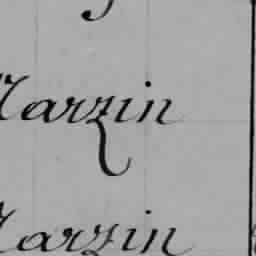 Marzin
Marzin